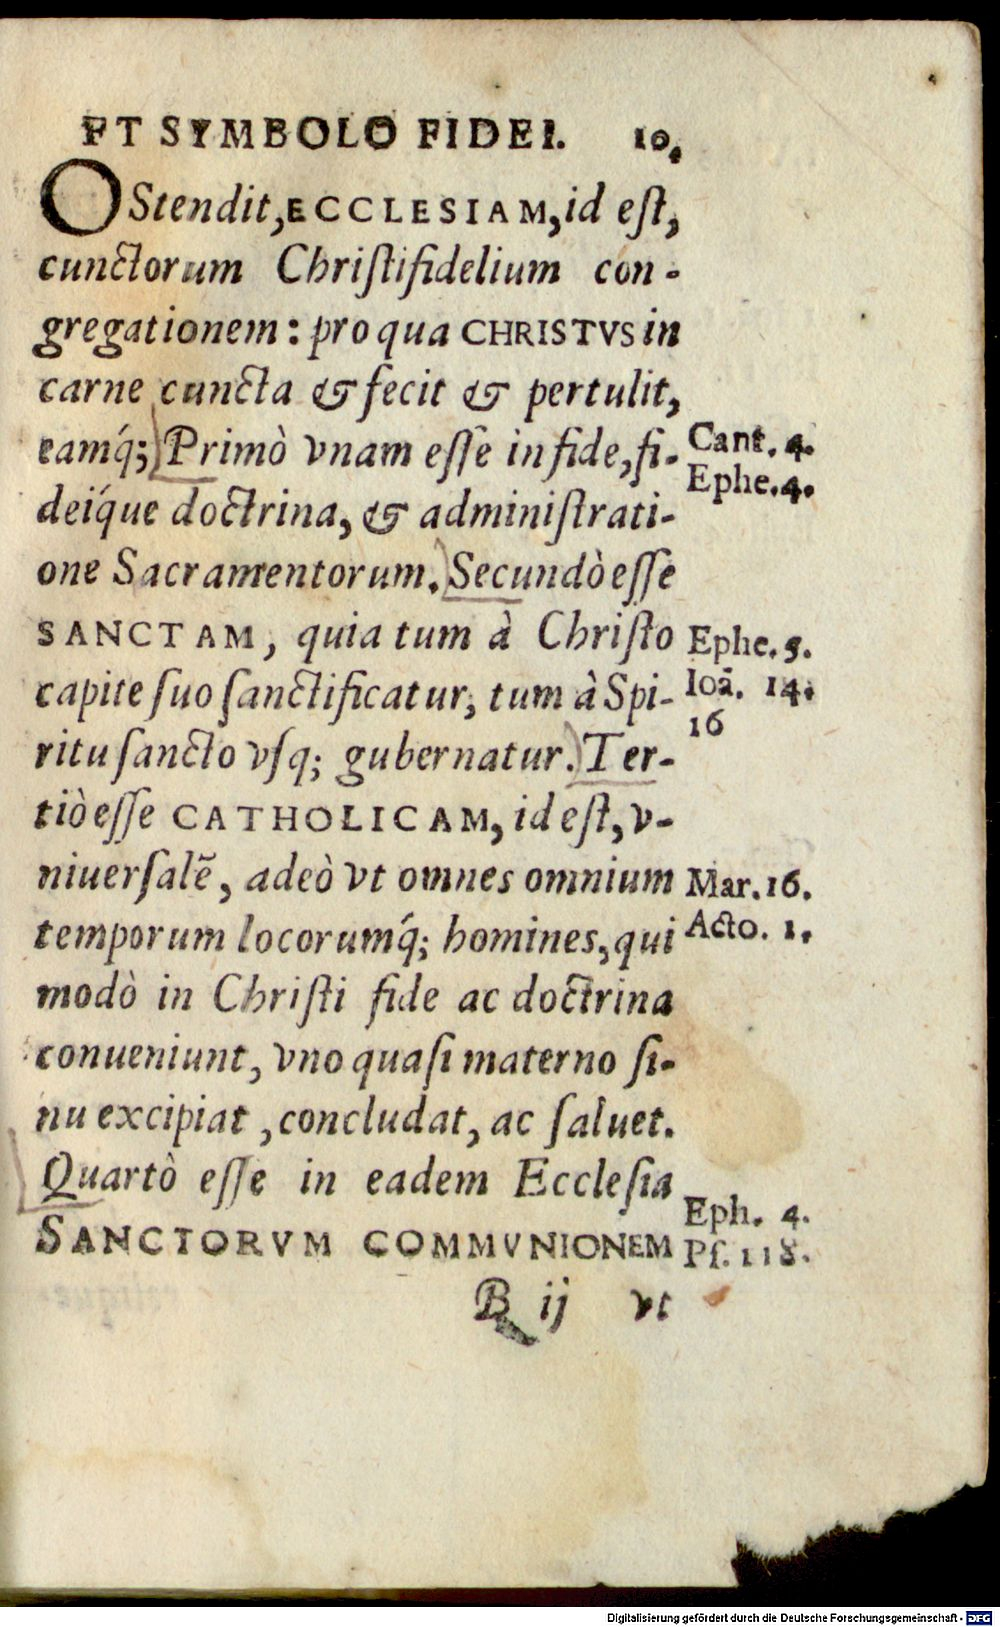 ET SYMBOLO FIDEI. 10.
OStendit, ECCLESIAM, id eſt,
cunctorum Chriſtifidelium con-
gregationem: pro qua CHRISTVS in
carne cuncta & fecit & pertulit,
eamq́; Primò vnam eſſe in fide, fi-
deiq́ue doctrina, & adminiſtrati-
one Sacramentorum. Secundò eſſe
SANCTAM, quia tum à Chriſto
capite ſuo ſanctificatur, tum à Spi-
ritu ſancto vſq; gubernatur. Ter-
tiò eſſe CATHOLICAM, id eſt, v-
niuerſalē, adeò vt omnes omnium
temporum locorumq́; homines, qui
modò in Chriſti fide ac doctrina
conueniunt, vno quaſi materno ſi-
nu excipiat, concludat, ac ſaluet.
Quartò eſſe in eadem Eccleſia
SANCTORVM COMMVNIONEM
B ij vt
Cant. 4.
Ephe. 4.
Ephe. 5.
Ioā. 14.
16
Mar. 16.
Acto. 1.
Eph. 4.
Pſ. 118.
Digitalisierung gefördert durch die Deutsche Forschungsgemeinschaft - DFG